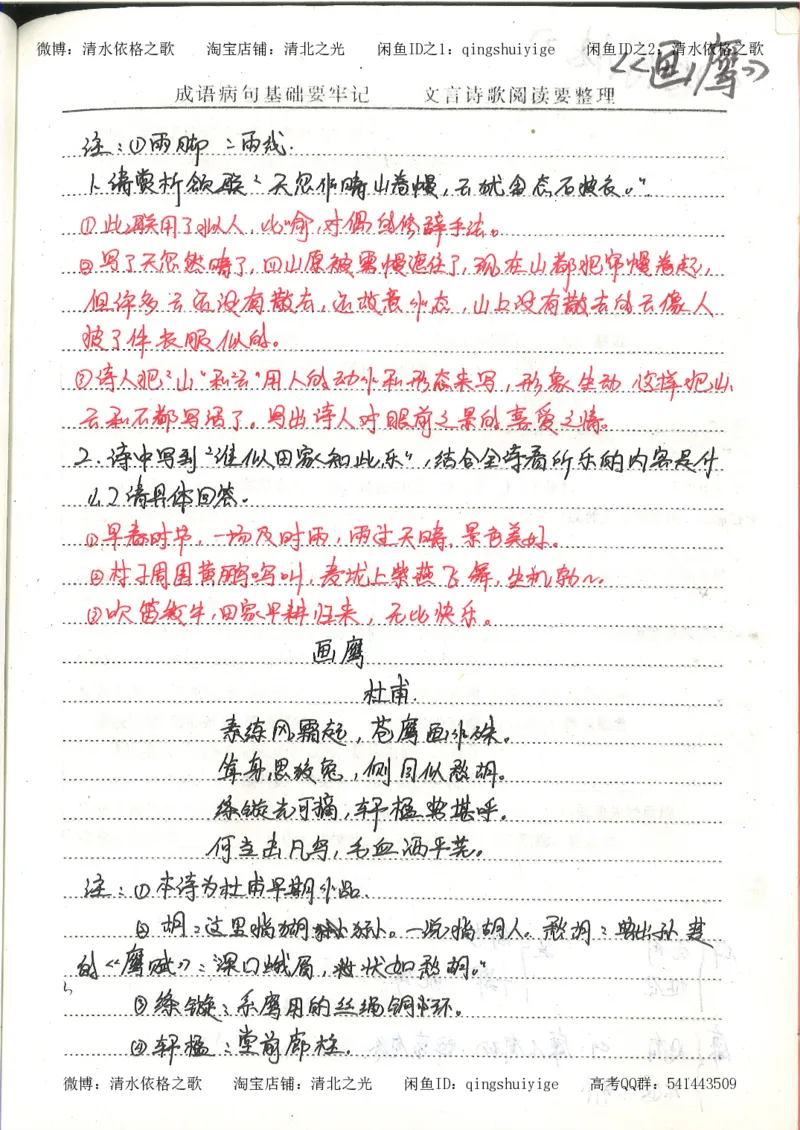 微博：清水依格之歌 淘宝店铺：清北之光 闲鱼ID之1：qingshuiyige 闲鱼ID之2：清水依格之歌
《画鹰》
成语病句基础要牢记 文言诗歌阅读要整理
注：①雨脚：雨线.
1.请赏析颔联“天忽作晴山卷幔，云犹含态石披衣。”
①此联用了拟人，比喻，对偶的修辞手法。
②写了天忽然晴了，四山原被雾幔遮住了，现在山都把帘幔卷起，
但许多云还没有散去，还故意作态，山上没有散去的云像人
披了件衣服似的。
③诗人把“山”和“云”用人的动作和形态来写，形象生动 这样把山、
云和石都写活了。写出诗人对眼前之景的喜爱之情。
2.诗中写到“谁似田家知此乐”，结合全诗看所乐的内容是什
么？请具体回答.
①早春时节，一场及时雨，雨过天晴，景色美好。
②村子周围黄鹂鸣叫，麦垅上紫燕飞舞，生机勃~
③吹笛牧牛，田家早耕归来，无比快乐。
画鹰
杜甫.
素练风霜起，苍鹰画作殊。
㧐身思狡兔，侧目似愁胡。
绦镟光可摘，轩楹势堪呼。
何当击凡鸟，毛血洒平芜。
注：①本诗为杜甫早期作品.
②胡：这里指猢狲。一说指胡人。愁胡：出孙楚
的《鹰赋》：“深目蛾眉，状如愁胡。”
③绦镟：系鹰用的丝绳铜环.
④轩楹：堂前廊柱.
微博：清水依格之歌 淘宝店铺：清北之光 闲鱼ID：qingshuiyige 高考QQ群：541443509